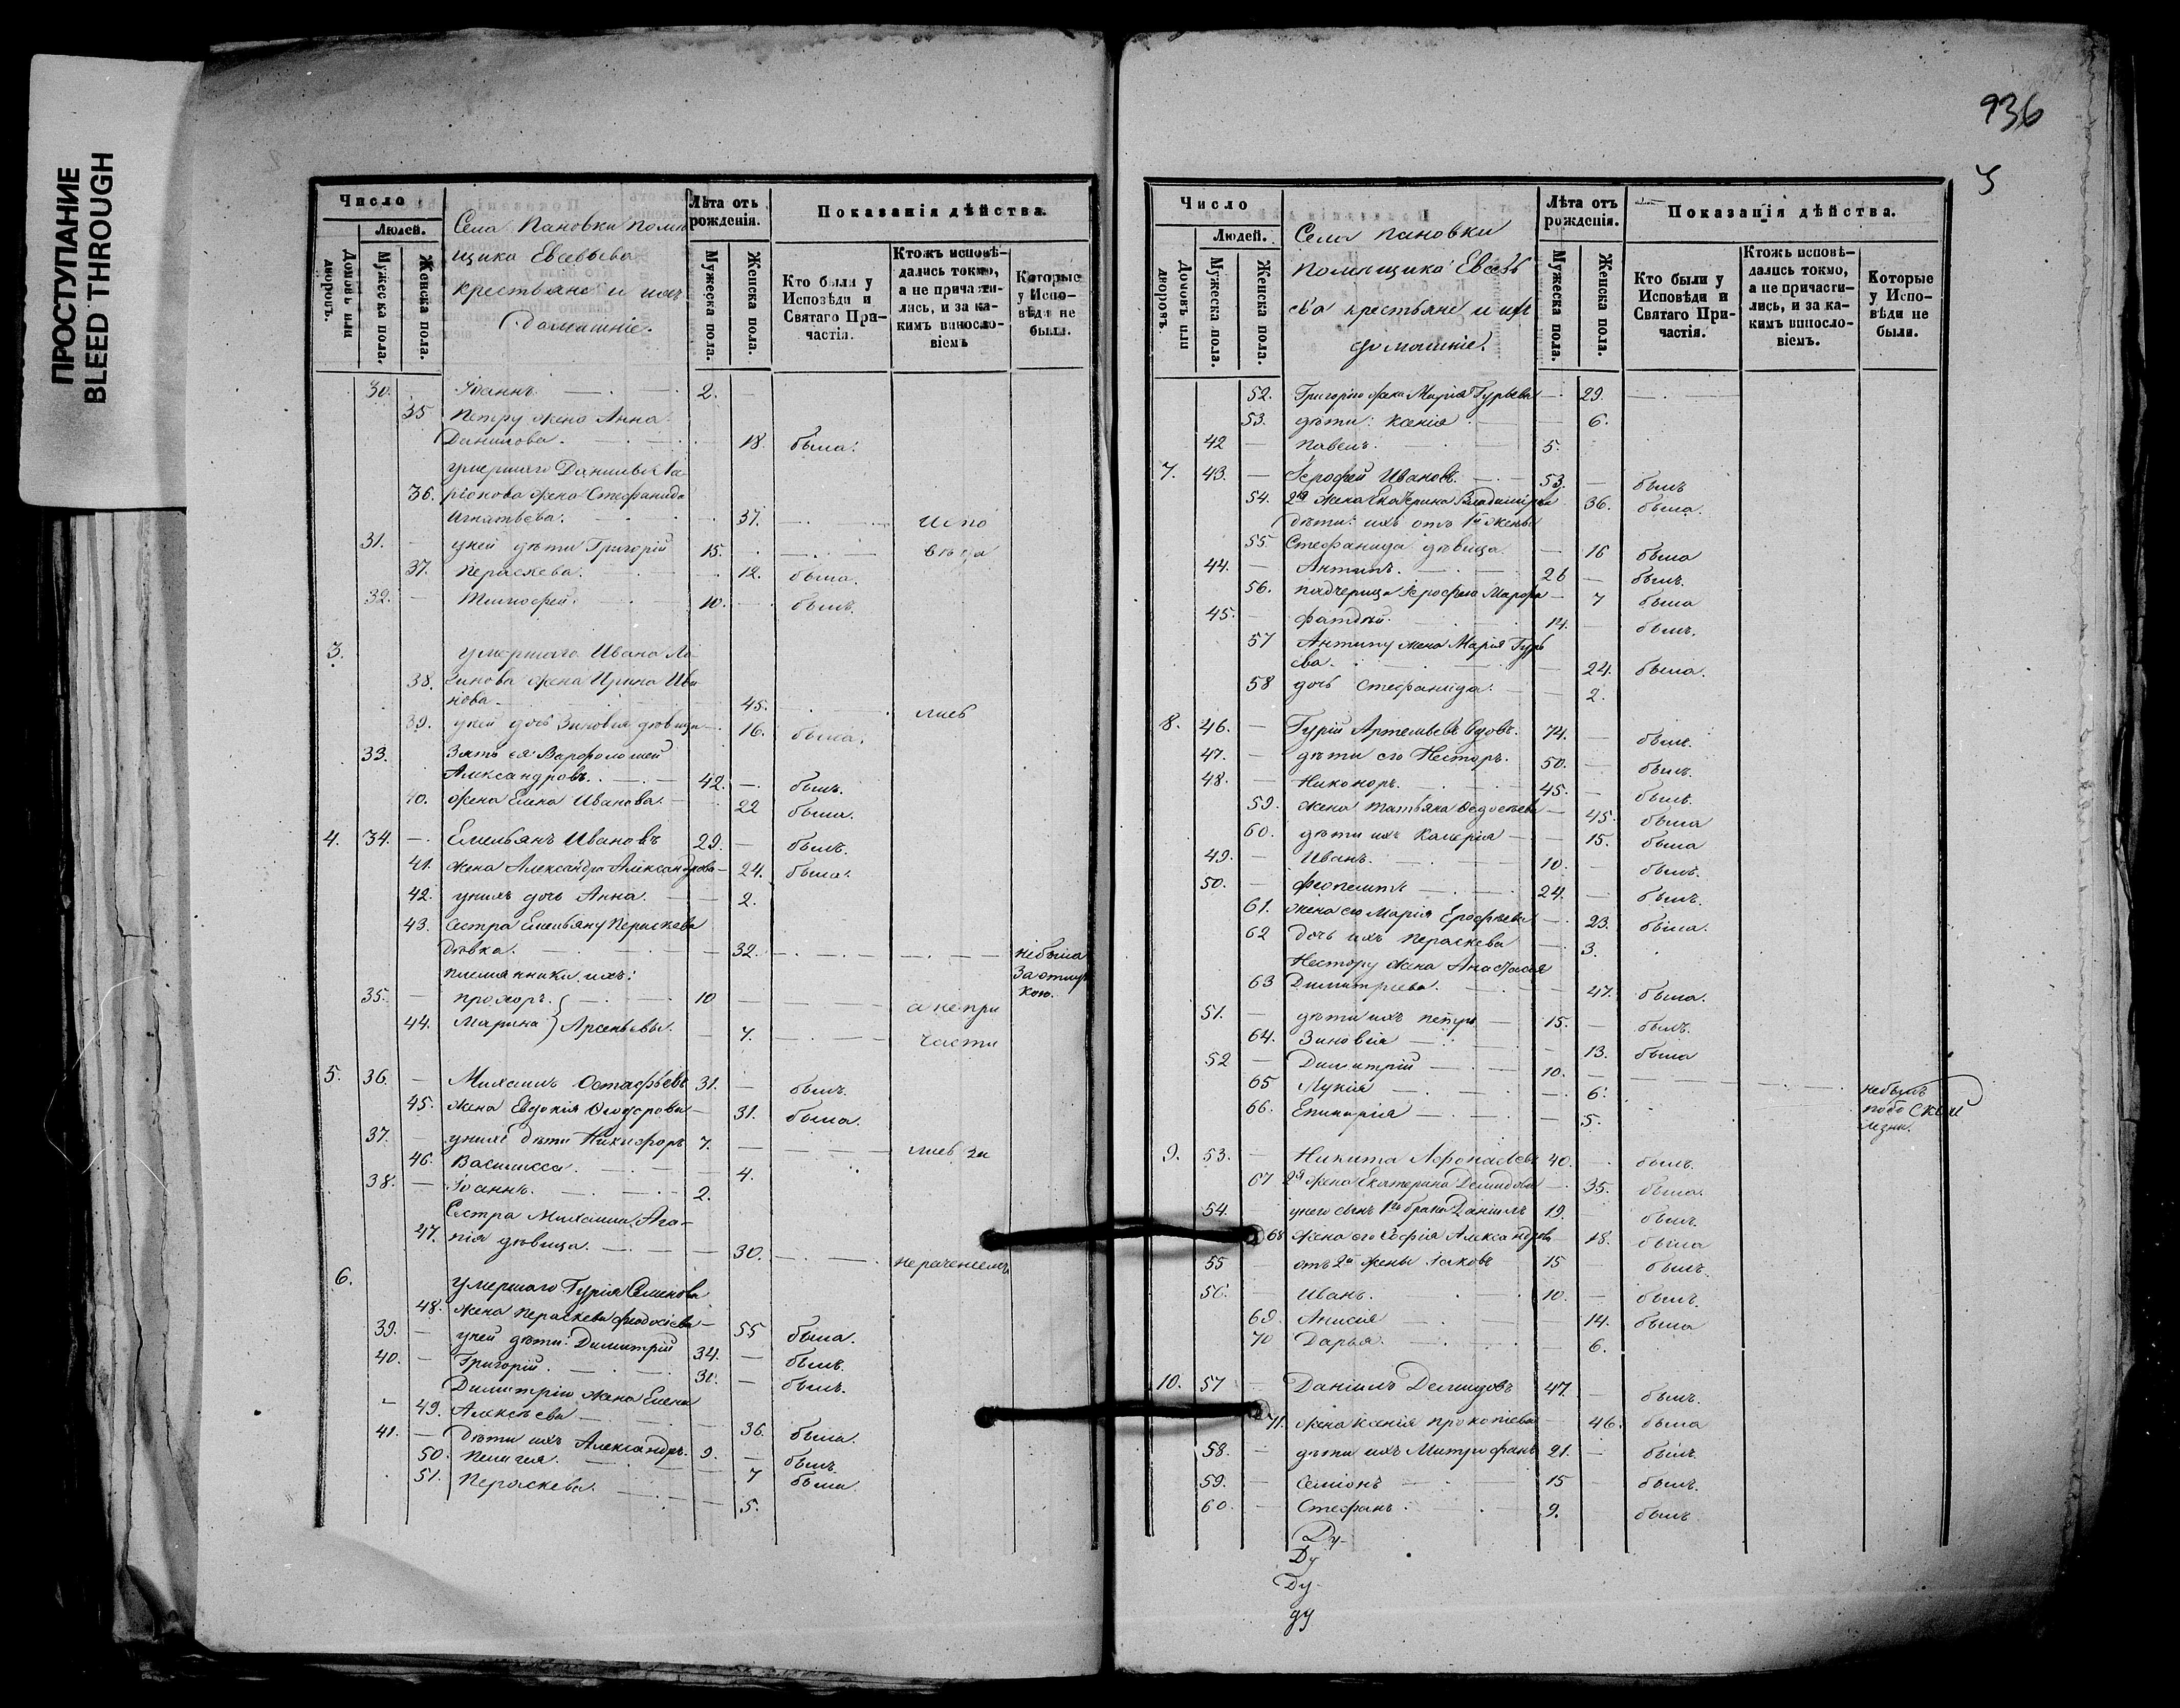 ПРОСТУПАНИЕ
BLEED THROUGH
Число
Людей.
Домовъ или дворовъ.
Мужеска пола.
Женска пола.
Села Пановки помѣ
щика Евсевьева
крестьяне и ихъ
домашніе.
Лѣта отъ рожденія.
Мужеска пола.
Женска пола.
Показанія дѣйства.
Кто были у Исповѣди и Святаго Причастія.
Ктожъ исповѣдались токмо, а не причастились, и за какимъ винословіемъ
Которые у Исповѣди не были.
30. — Іоаннъ. — 2. —
35 Петру жена Анна
Данилова. — 18. была.
умершаго Даніила
36. жена Стефанида
Игнатьева. 37. — Испо
31. — у ней дѣти Григорій 15. — вѣда
37. Пераскева. 12. была.
32. — Тимофей. 10. — былъ.
3. умершаго Ивана
38. жена Ирина Ива
нова. 45. — лись
39. у ней дочь Зиновія дѣвица — 16. была.
33. Зять ея Варфоломей
Александровъ. — 42. — былъ.
40. жена Елена Иванова. — 22 была.
4. 34. — Емельянъ Ивановъ 29. — былъ.
41. жена Александра Александрова — 24. была.
42. у нихъ дочь Анна. — 2.
43. Сестра Емельяну Пераскева
дѣвка. — 32. — не была
за отлуч
кою.
племянники ихъ:
35. — Прохоръ. 10 — а не при
44. Марина } Арсеньевы. — 7. — части
5. 36. — Михаилъ Остафьевъ 31. — былъ.
45. жена Евдокія Ѳеодорова — 31. была.
37. — у нихъ дѣти Никифоръ 7. — лись за
46. Василисса. — 4.
38. — Іоаннъ. — 2.
Сестра Михаила Ага-
47. пія дѣвица. — 30. — нераченіемъ
6. умершаго Гурія Семенова
48. жена Пераскева Ѳеодосіева — 55 была.
39. — у ней дѣти: Димитрій 34. — былъ.
40. — Григорій. 30. — былъ.
Димитрію жена Елена
49. Алексѣева — 36. была.
41. — Дѣти ихъ Александръ. 9. — былъ.
50. Пелагея. — 7 была.
51. Пераскева. — 5.
936
Число
Людей.
Домовъ или дворовъ.
Мужеска пола.
Женска пола.
Села Пановки
помѣщика Евсевь
ева крестьяне и ихъ
домашніе.
Лѣта отъ рожденія.
Мужеска пола.
Женска пола.
Показанія дѣйства.
Кто были у Исповѣди и Святаго Причастія.
Ктожъ исповѣдались токмо, а не причастились, и за какимъ винословіемъ.
Которые у Исповѣди не были.
52. Григорію жена Марія Гурьева — 29. —
53. дѣти: Ксенія — 6.
42 — Павелъ. 5.
7. 43. — Іерофей Ивановъ. — 53. — былъ
54. 2я жена Екатерина Владимірова 36. была.
дѣти ихъ отъ 1й жены
55. Стефанида дѣвица. — 16 была
44. — Антипъ. — 26 — былъ.
56. падчерица Іерофею Марфа — 7 была
45. — Фатдѣй. 14. — былъ.
57 Антипу жена Марія Гурь
ева. — 24. была.
58 дочь Стефанида. — 2.
8. 46. — Гурій Артемьевъ вдовъ. 74. — былъ.
47. — дѣти его Несторъ. 50. — былъ.
48. — Никоноръ. 45. — былъ.
59. жена Татьяна Ѳедосѣева — 45. была
60. дѣти ихъ Калерія — 15. была
49. — Иванъ. 10. — былъ.
50. — Ѳеопемптъ — 24. — былъ.
61. жена его Марія Ерофѣева — 23. была.
62 дочь ихъ Пераскева — 3.
Нестору жена Анастасія
63 Димитріева. — 47. была.
51. — дѣти ихъ Петръ — 15. — былъ.
64. Зиновія — 13. была
52 — Димитрій — 10. — не былъ
65 Лукія — 6. по бо
лезни.
66. Епихарія — 5.
9. 53. — Никита Афонасьевъ 40. — былъ.
67 2я жена Екатерина Демидова — 35. была.
54. у него сынъ 1го брака Даніилъ 19. — былъ.
68 жена его Софія Александрова 18. была
55 — отъ 2й жены Іаковъ 15 — былъ.
56. — Иванъ. 10. — былъ.
69. Анисія — 14. была
70 Дарья. — 6.
10. 57 — Даніилъ Демидовъ 47. — былъ.
71. жена Ксенія Прокопіева — 46. была
58. — дѣти ихъ Митрофанъ 21. — былъ.
59. — Семіонъ — 15 — былъ.
60. — Стефанъ. — 9. былъ
Ду-
Ду
Ду-
ду